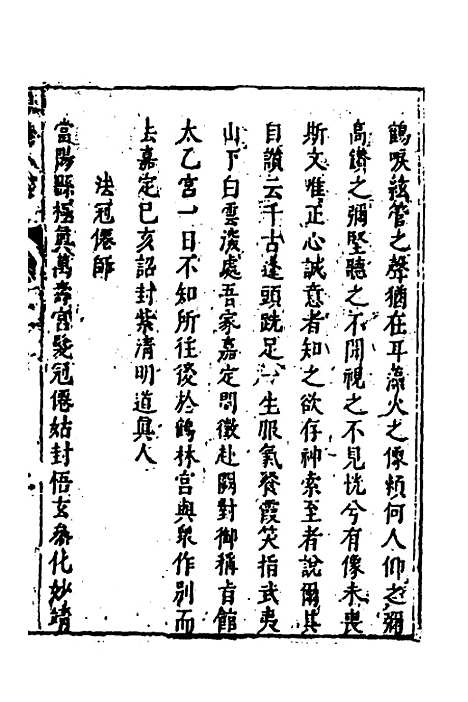 鶴唳絃管之聲猶在耳瀛火之像頼何人仰之彌
高鑚之彌堅聽之不聞視之不見恍兮有像未喪
斯文惟正心誠意者知之欲存神索至者說爾其
自讚云千古蓬頭跣足一生服氣餐霞笑指武夷
山下白雲深處吾家嘉定間徵赴闕對御稱旨館
太乙宮一日不知所往後於鶴林宮與衆作別而
去嘉定己亥詔封紫清明道真人
法冠僊師
當陽縣極真萬壽宮髮冠僊姑封悟玄參化妙靖